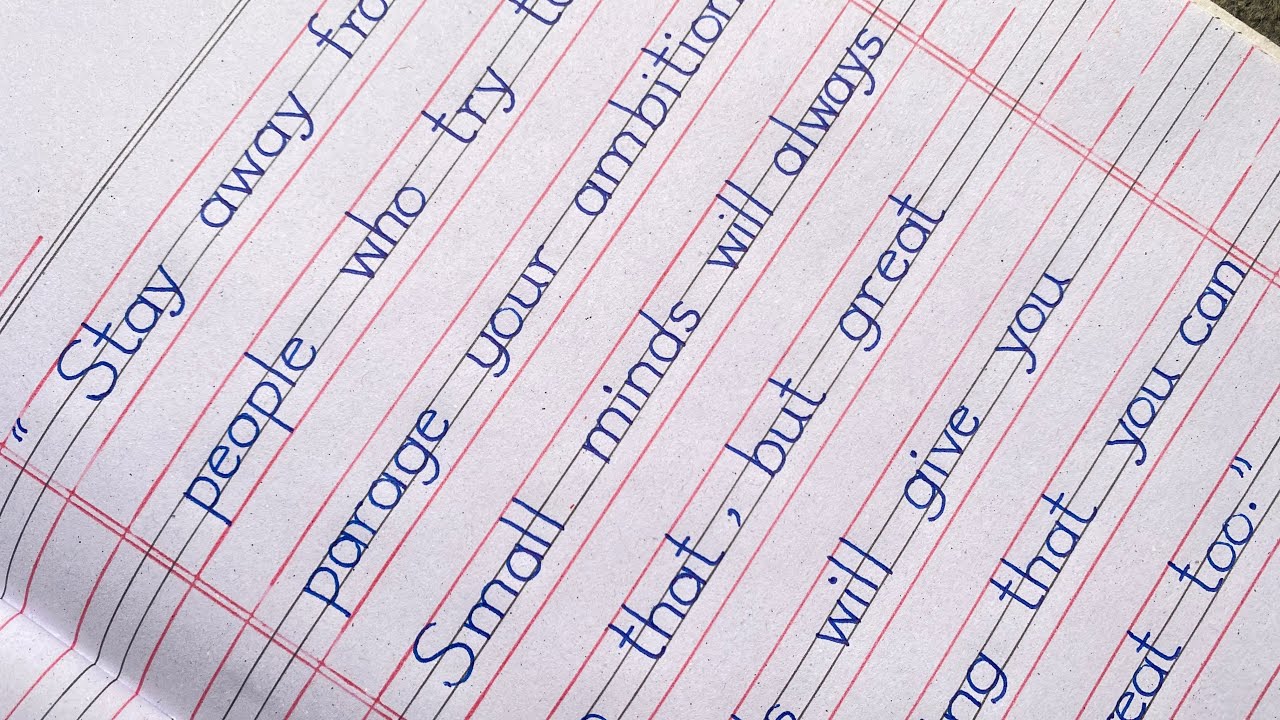 " Stay away
people who try to
parage your ambition
Small minds will always
that, but great
will give you
that you can
too."